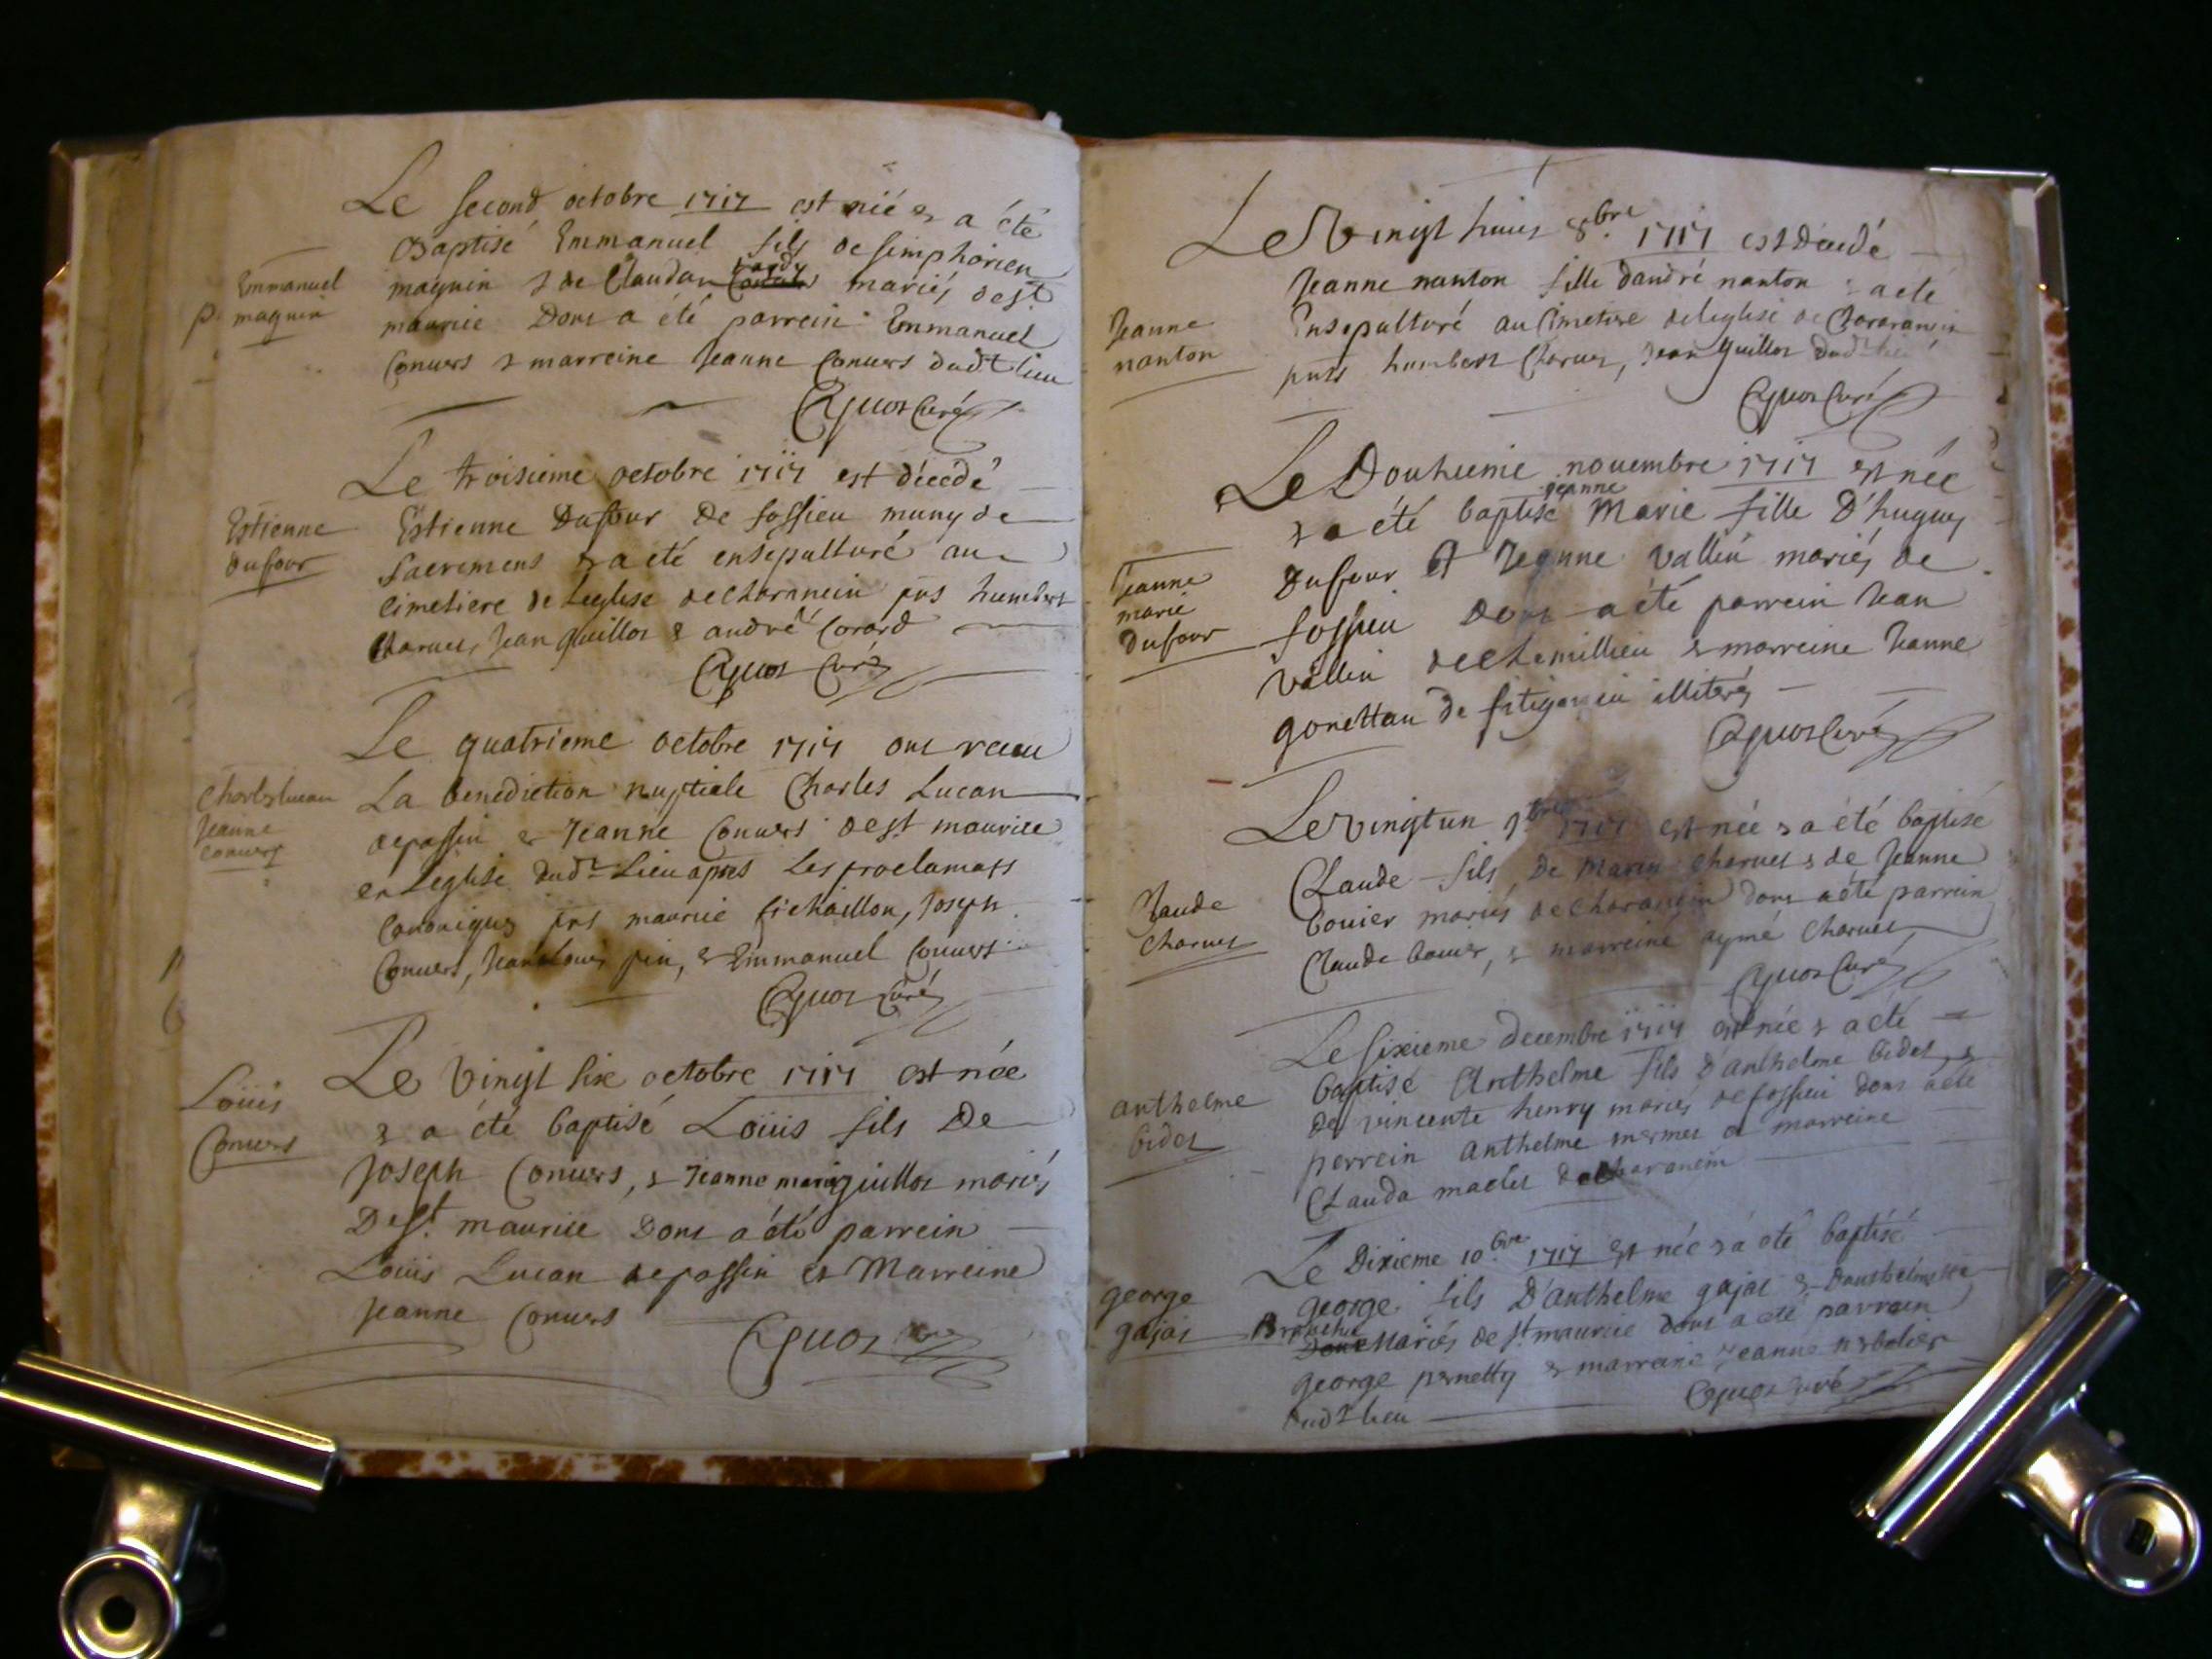 Le second octobre 1717 est né & a été
Baptisé Emmanuel fils de simphorien
Emmanuel
maguin
maguin & de Clauda mariés de st
maurice Dont a été parrein Emmanuel
Conuers & marreine Jeanne Conuers dudt lieu
Curé
Le troisieme octobre 1717 est décedé
Estienne
dufour
Estienne Dufour de fossieu muny de
sacremens & a eté ensépulturé au
cimetiere de leglise de charancin pnts humbert
Charuet, Jean guillot & andré Corard
Curé
Le quatrieme octobre 1717 ont receu
Charles lucan
Jeanne
conuers
La benediction nuptiale Charles Lucan
depassin & Jeanne Conuers de st maurice
en Leglise dudt Lieu apres Les proclamats
Canoniques pnts maurice fichaillon, Joseph
Conuers, Jean Louis pin, & Emmanuel Conuers
Curé
Le vingt six octobre 1717 est née
Loüis
Conuers
& a été baptisé Loüis fils De
Joseph Conuers, & Jeanne marie guillot mariés
De st. maurice Dont a été parrein
Loüis Lucan depassin et Marreine
Jeanne Conuers
Le vingt huict 8bre 1717 est décedé
Jeanne
nanton
Jeanne nanton fille dandré nanton & a eté
Ensepulturé au Cimetire de leglise de Charancin
pnts humbert Charuet, Jean guillot Dudt lieu
Curé
Le Douhieme nouembre 1717 est née
jeanne
& a été baptisé Marie fille D'hugues
Jeanne
marie
dufour
Dufour et Jeanne vallin mariés de
fossieu Dont a été parrein Jean
vallin de chemillieu & marreine Jeanne
gonettan de illiterés
Curé
Le vingt un 9bre 1717 est née & a été baptisé
Claude
Charuet
Claude fils De Marin Charuet & de Jeanne
bouier mariés de Charancin dont a été parrein
Claude bouier, & marreine aymé Charuet
Curé
Le sixieme decembre 1717 est née & a eté
anthelme
bidet
baptisé Anthelme fils D'anthelme bidet &
de vincente henry mariés de fossieu dont a été
perrein anthelme mermet et marreine
Clauda maclet de charancin
Le Dixieme 10bre 1717 est née & a eté baptisé
george
gajat
george fils D'anthelme gajat &
mariés de st maurice dont a eté parrein
george pernetty & marreine Jeanne
dudt lieu
Curé